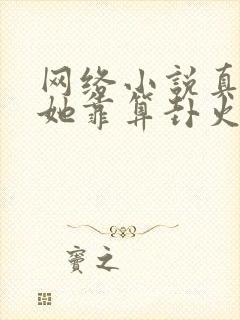 网络小说真
她靠算卦火
窦之